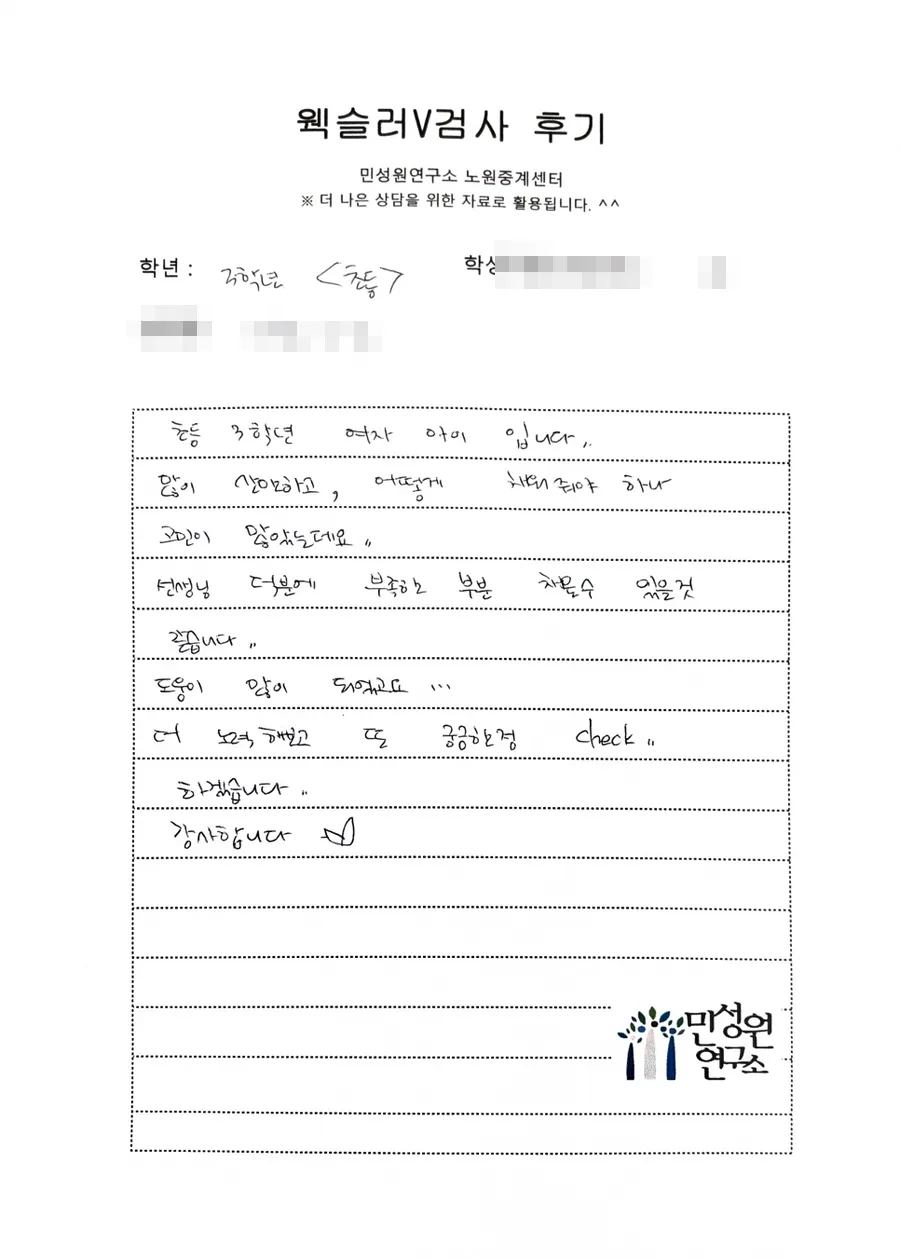 웩슬러V검사 후기
민성원연구소 노원중계센터
※ 더 나은 상담을 위한 자료로 활용됩니다. ^^
학년 : 3학년 <초등> 학생
초등 3학년 여자 아이 입니다..
많이 산만하고, 어떻게 채워줘야 하나
고민이 많았는데요..
선생님 덕분에 부족한 부분 채울수 있을것
같습니다..
도움이 많이 되었고요...
더 노력해보고 또 궁금한점 check..
하겠습니다..
감사합니다
민성원
연구소